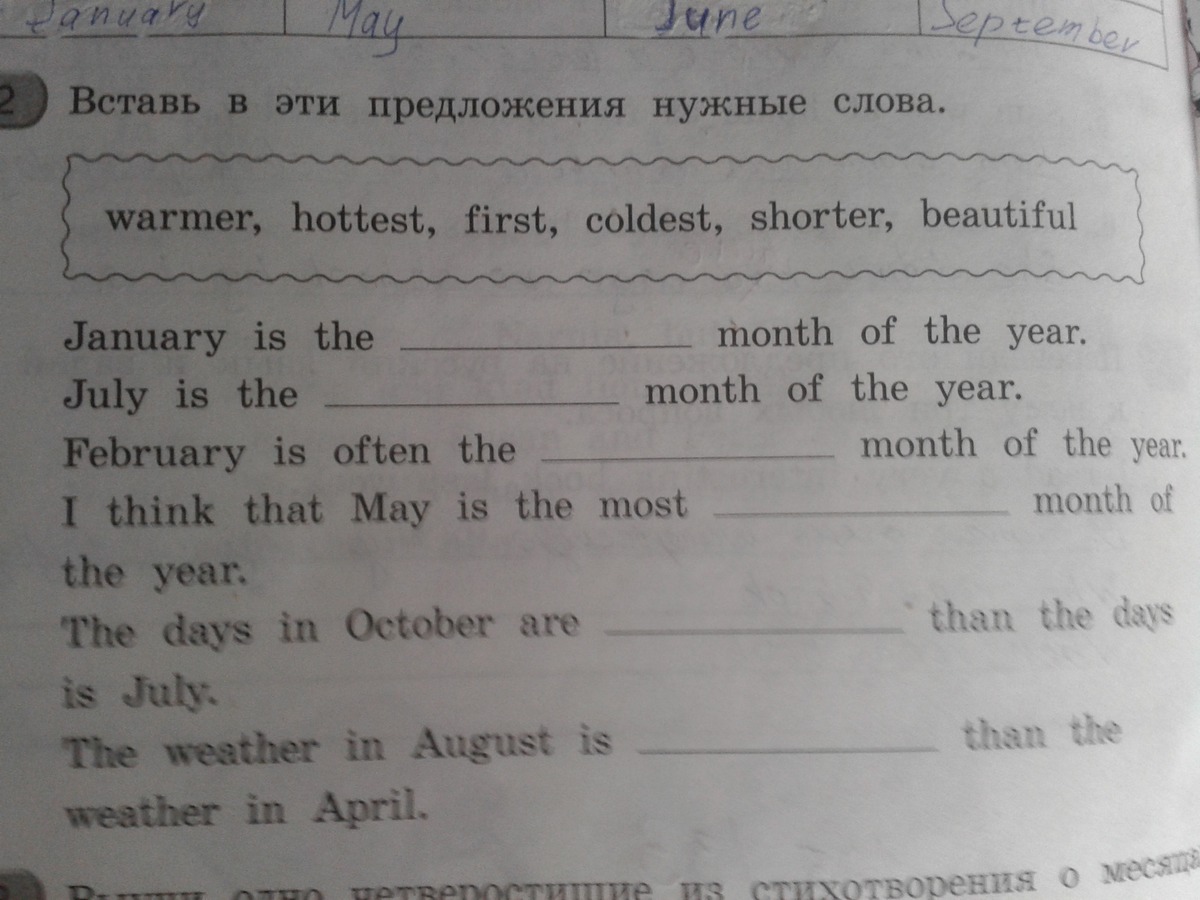 January May June September
2 Вставь в эти предложения нужные слова.
warmer, hottest, first, coldest, shorter, beautiful
January is the ____________ month of the year.
July is the ____________ month of the year.
February is often the ____________ month of the year.
I think that May is the most ____________ month of
the year.
The days in October are ____________ than the days
is July.
The weather in August is ____________ than the
weather in April.
Выучи одно четверостишие из стихотворения о